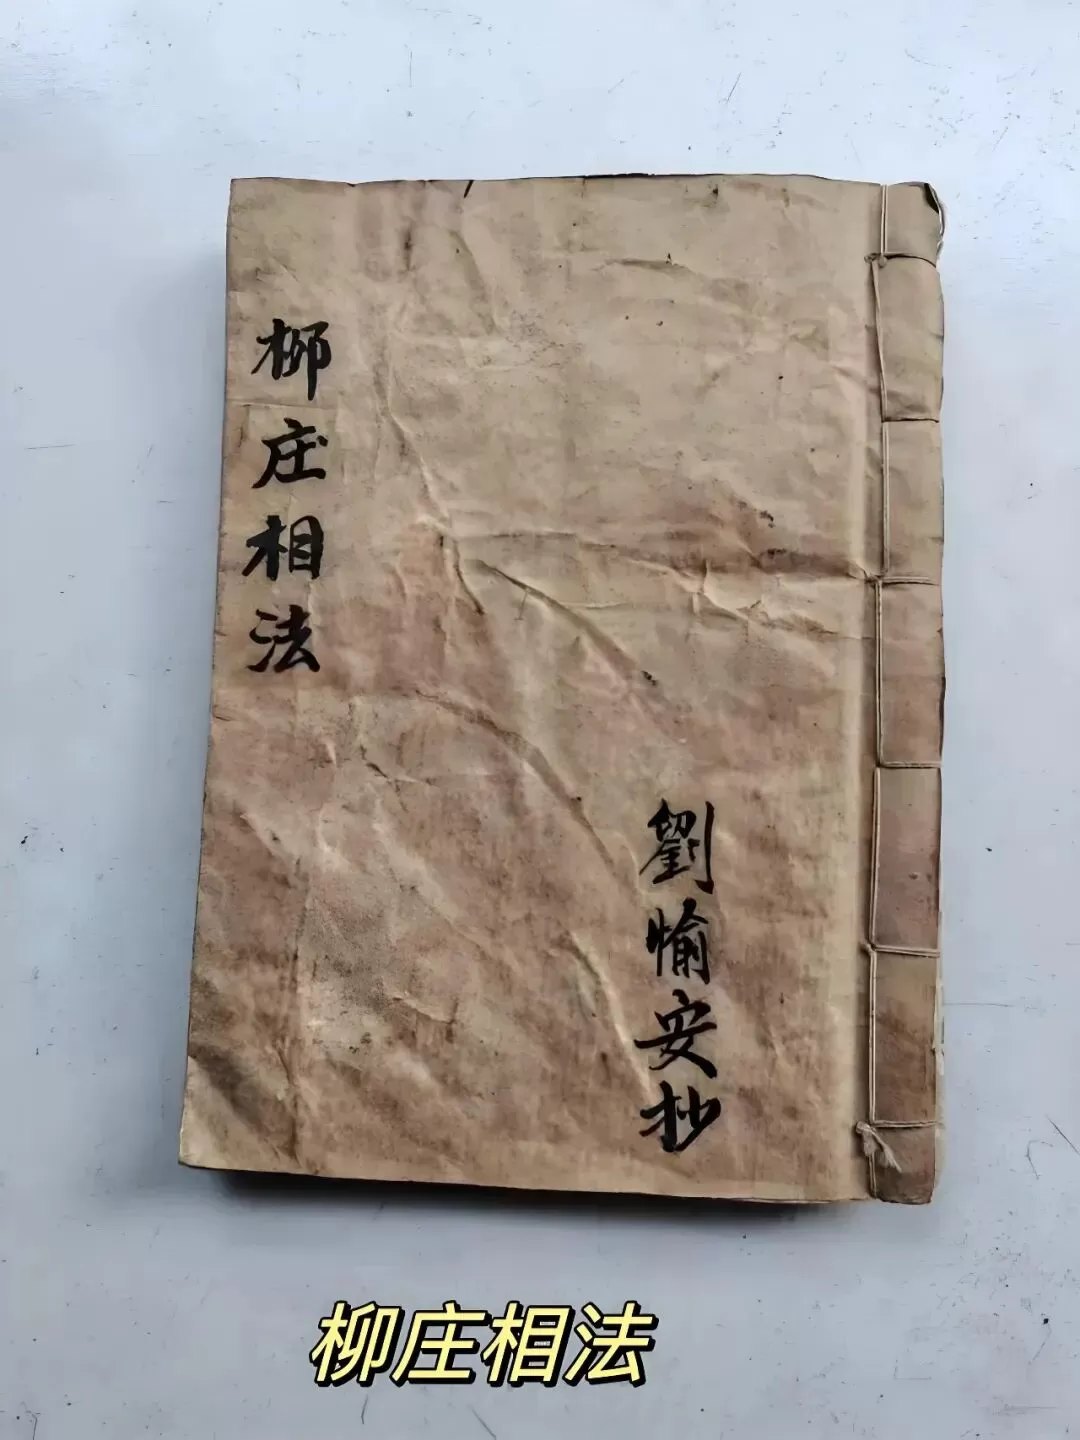 柳庄相法
劉愉安抄
柳庄相法